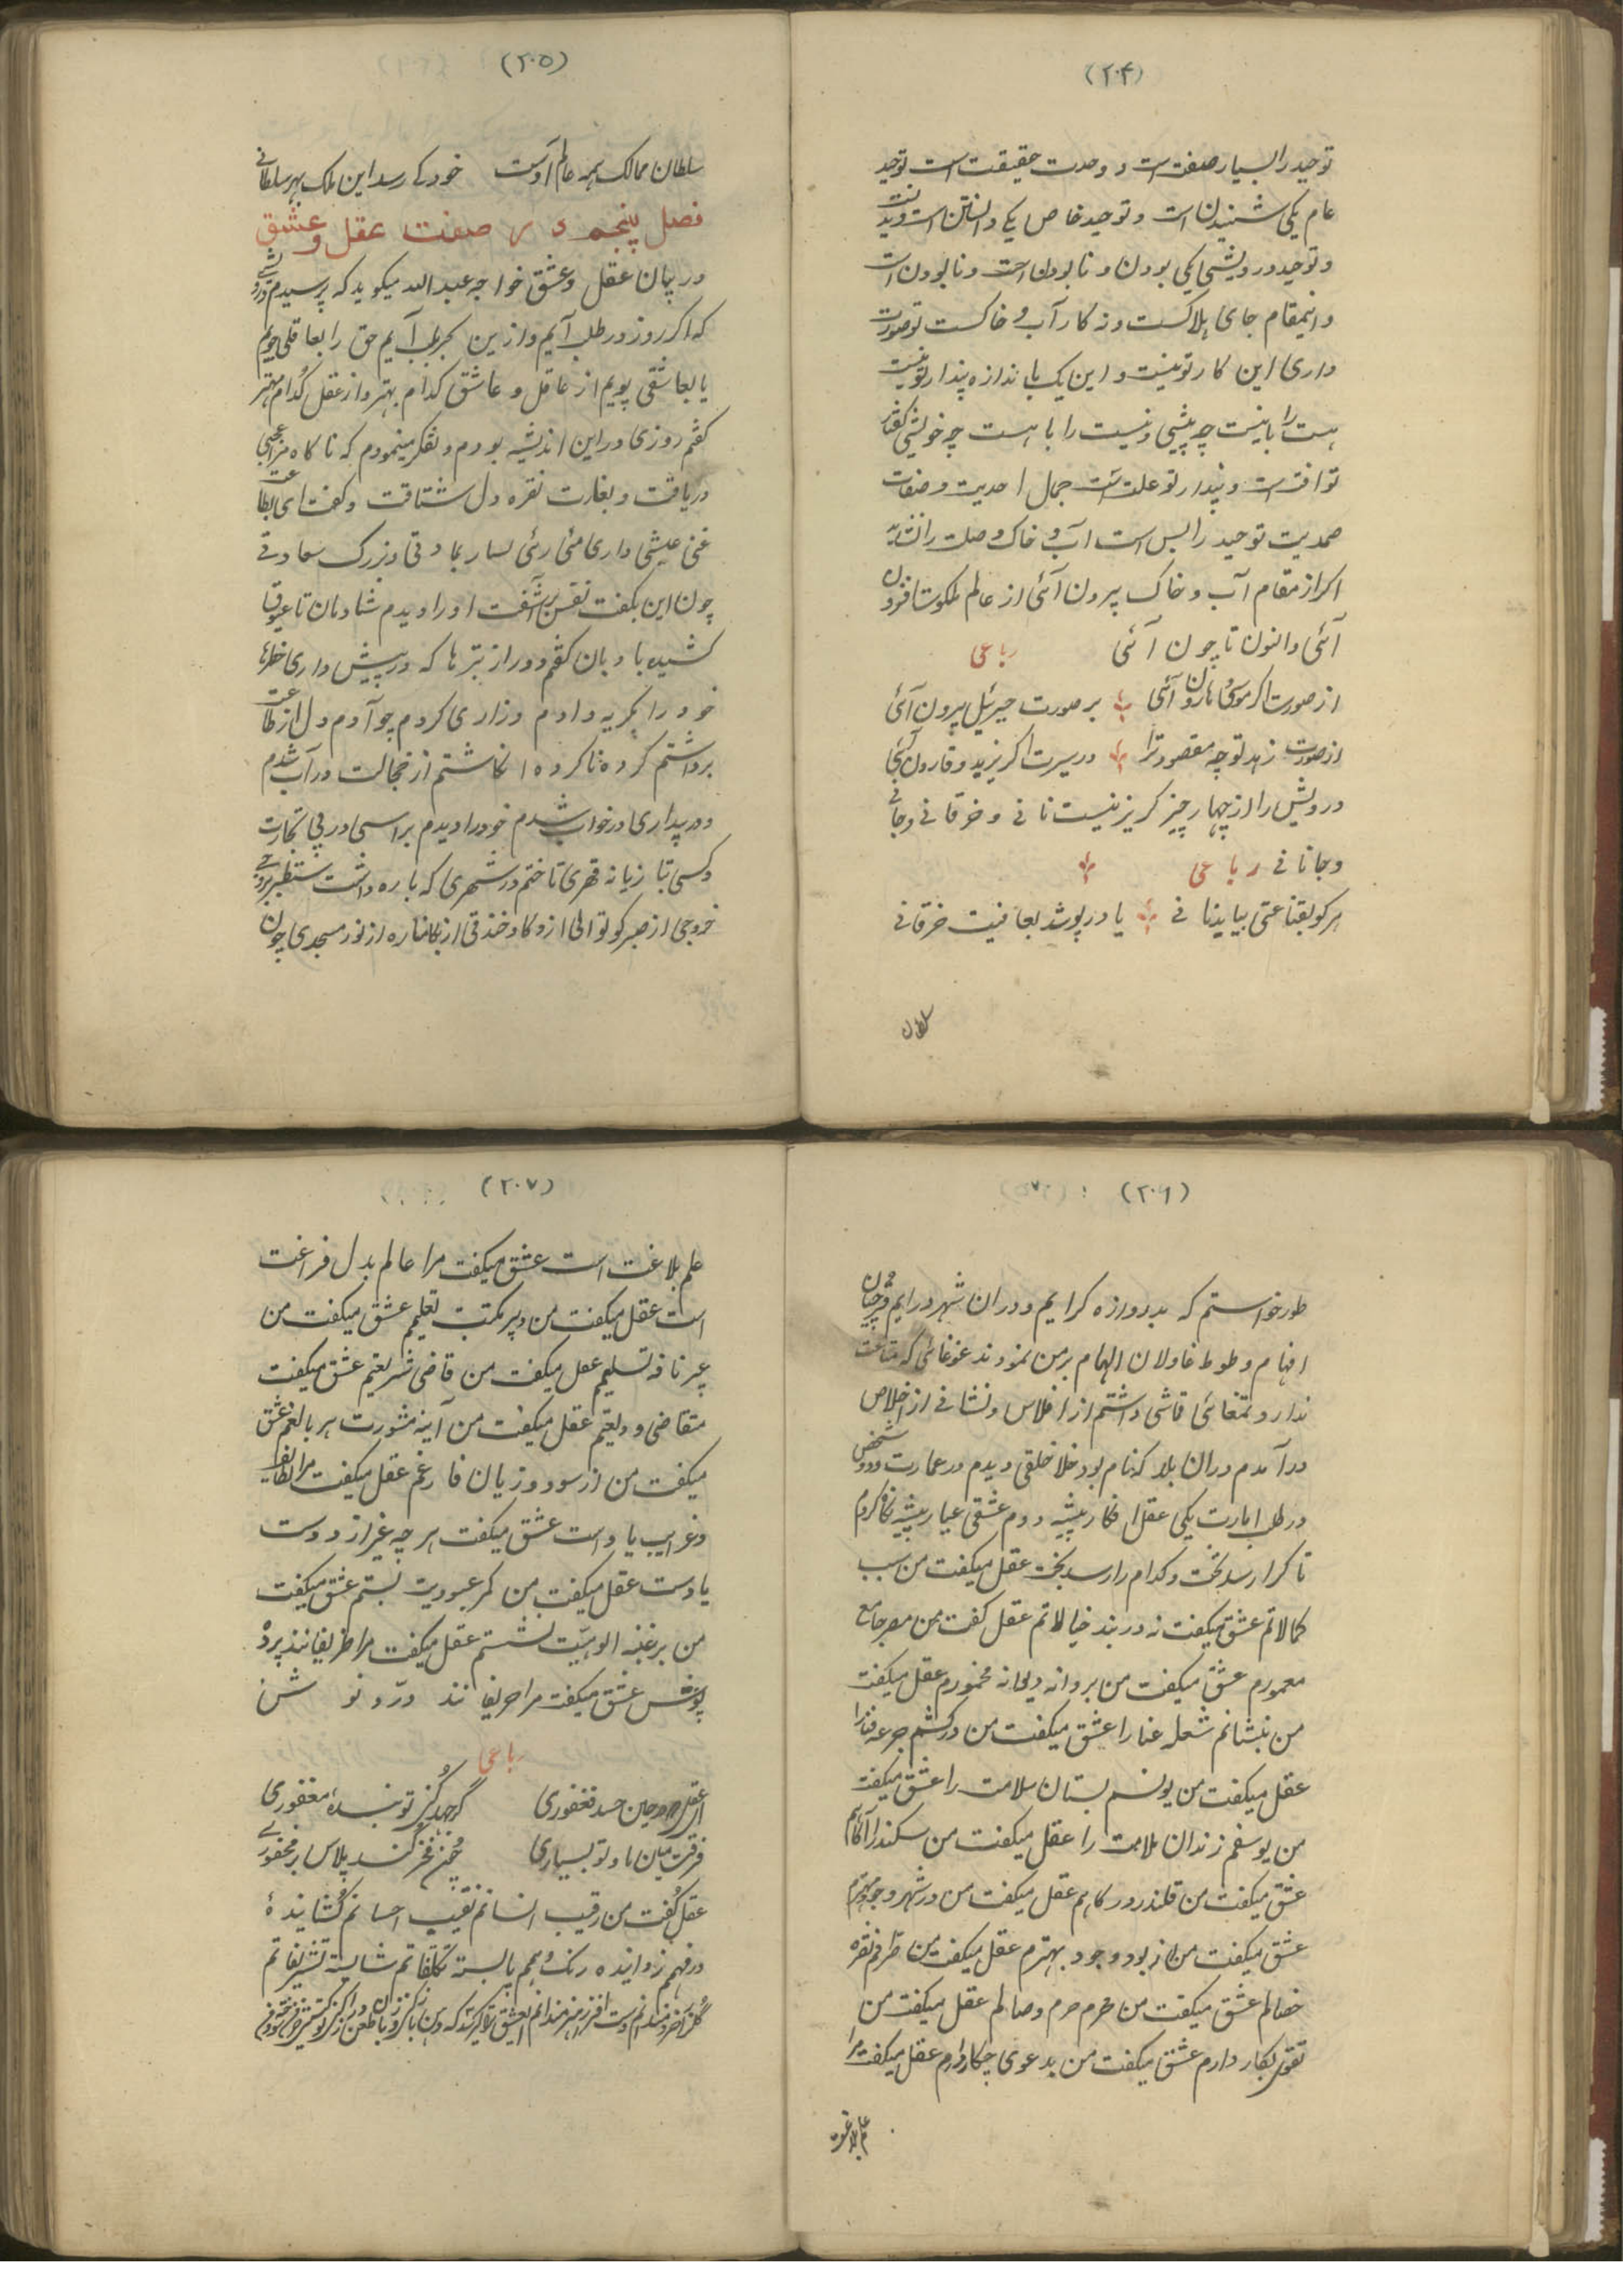 (۲۰۴)
توحید را بسیار صفت است و وحدت حقیقت است توحید
عام یکی شنیدن است و توحید خاص یکی دانستن است و دیدنست
و توحید درویشی یکی بودن و نابودن است و نابودن است
و اینمقام جای هلاکست و نه کار آب و خاکست تو صورت
داری این کار تو نیست و این یک با ندازه پندار تو نیست
هست را با نیست چه پیشی و نیست را با هست چه خویشی گفتار
تو آفت است و پندار تو علت است جمال احدیت و صفات
صمدیت توحید را بس است آب و خاک وصلت را نشاید
اکر از مقام آب و خاک بیرون آئی از عالم ملکوت افزون
آئی و اکنون تا چون آئی رباعی
از صورت اکر موسی و هارون آئی بر صورت جبرئیل بیرون آئی
از صورت زهد تو چه مقصود ترا در سیرت اکر یزید و قارون آئی
درویش را از چهار چیز کریز نیست نانی و خرقانی و جانی
و جانانی رباعی
هر کو بقناعتی بیابد نانی یا در پوشد بعافیت خرقانی
سلطان
(۲۰۵)
سلطان ممالک همه عالم اوست خود کی رسد این ملک بهر سلطانی
فصل پنجم در صفت عقل و عشق
در بیان عقل و عشق خواجه عبد الله میکوید که پرسیدم درویشی
که اکر روز در طلب آیم و از ین بحر بلب آیم حق را بعاقلی جویم
یا بعاشقی پویم از عاقل و عاشق کدام بهتر و از عقل کدام مهتر
کفتم روزی در این اندیشه بودم و تفکر مینمودم که ناکاه مرا عجبی
دریافت و بغارت نقره دل شتافت و کفت ای بطاعت
غنی عیشی داری منی رئی بسار بمادتی و بزرک سعادتی
چون این بکفت نفس برآشفت او را دیدم شادمان تا عیوقا
کشیده بادبان کفتم دور از تبرها که در پیش داری خطرها
خود را بکریه دادم و زاری کردم چو آدم و دل از طاعت
برداشتم کرده ناکرده انکاشتم از خجالت در آب شدم
و در بیداری در خواب شدم خود را دیدم بر اسبی در پی تجارت
و کسی بتا زیانه قهری تا ختم در شهری که باره داشت
خروجی از صبر کوتوالی از و کا و خندقی از بکا مناره از نور مسجدی چون
(۲۰۶)
طور خواستم که بدروازه کرایم و در ان شهر در ایم
افهام و طوط غاولان الهام بر من نمودند غوغائی که متاعت
ندارد تمغائی قاشی داشتم از افلاس و نشانی از اخلاص
در آمدم در ان بلا که نام بود خلا خلقی دیدم در عمارت و دو شخص
در طلب امارت یکی عقل افکار پیشه دوم عشقی عیار پیشه نکاه کردم
تا کرا رسد تخت و کدام را رسد بخت عقل میکفت من سبب
کمالاتم عشق میکفت نه در بند خیالاتم عقل کفت من مصر جامع
معمورم عشق میکفت من پروانه دیوانه مخمورم عقل میکفت
من بنشانم شعله غنا را عشق میکفت من درکشم جرعه فنا را
عقل میکفت من یونسم بستان سلامت را عشق میکفت
من یوسفم زندان ملامت را عقل میکفت من سکندر آکاهم
عشق میکفت من قلندر درکاهم عقل میکفت من در شهر وجود مهترم
عشق میکفت من از بود وجود بهترم عقل میکفت من صراف نقره
خصالم عشق میکفت من محرم حرم وصالم عقل میکفت من
تقوی بکار دارم عشق میکفت من بدعوی چکار دارم عقل میکفت مرا
علم بلاغت
(۲۰۷)
علم بلاغت است عشق میکفت مرا عالم بدل فراغت
است عقل میکفت من دبیر مکتب تعلیمم عشق میکفت من
عبیر نافه تسلیمم عقل میکفت من قاضی شریعتم عشق میکفت
متقاضی ودیعتم عقل میکفت من آینه مشورت هر بالغم عشق
میکفت من از سود و زیان فارغم عقل میکفت مرا لطایف
و غرایب یاد است عشق میکفت هر چه غیر از دوست
یادست عقل میکفت من کمر عبودیت بستم عشق میکفت
من بر عتبه الوهیّت نشستم عقل میکفت مرا ظریفانند پرده
پوش عشق میکفت مرا حریفانند درد نوش
رباعی
کر جهد کنی تو بنده مغفوری
فرقت میان ما و تو بسیاری
عقل کفت من رقیب انسانم نقیب احسانم کشاینده
در فهمم زداینده رنک وهمم بایسته تکلفاتم شایسته تشریفاتم